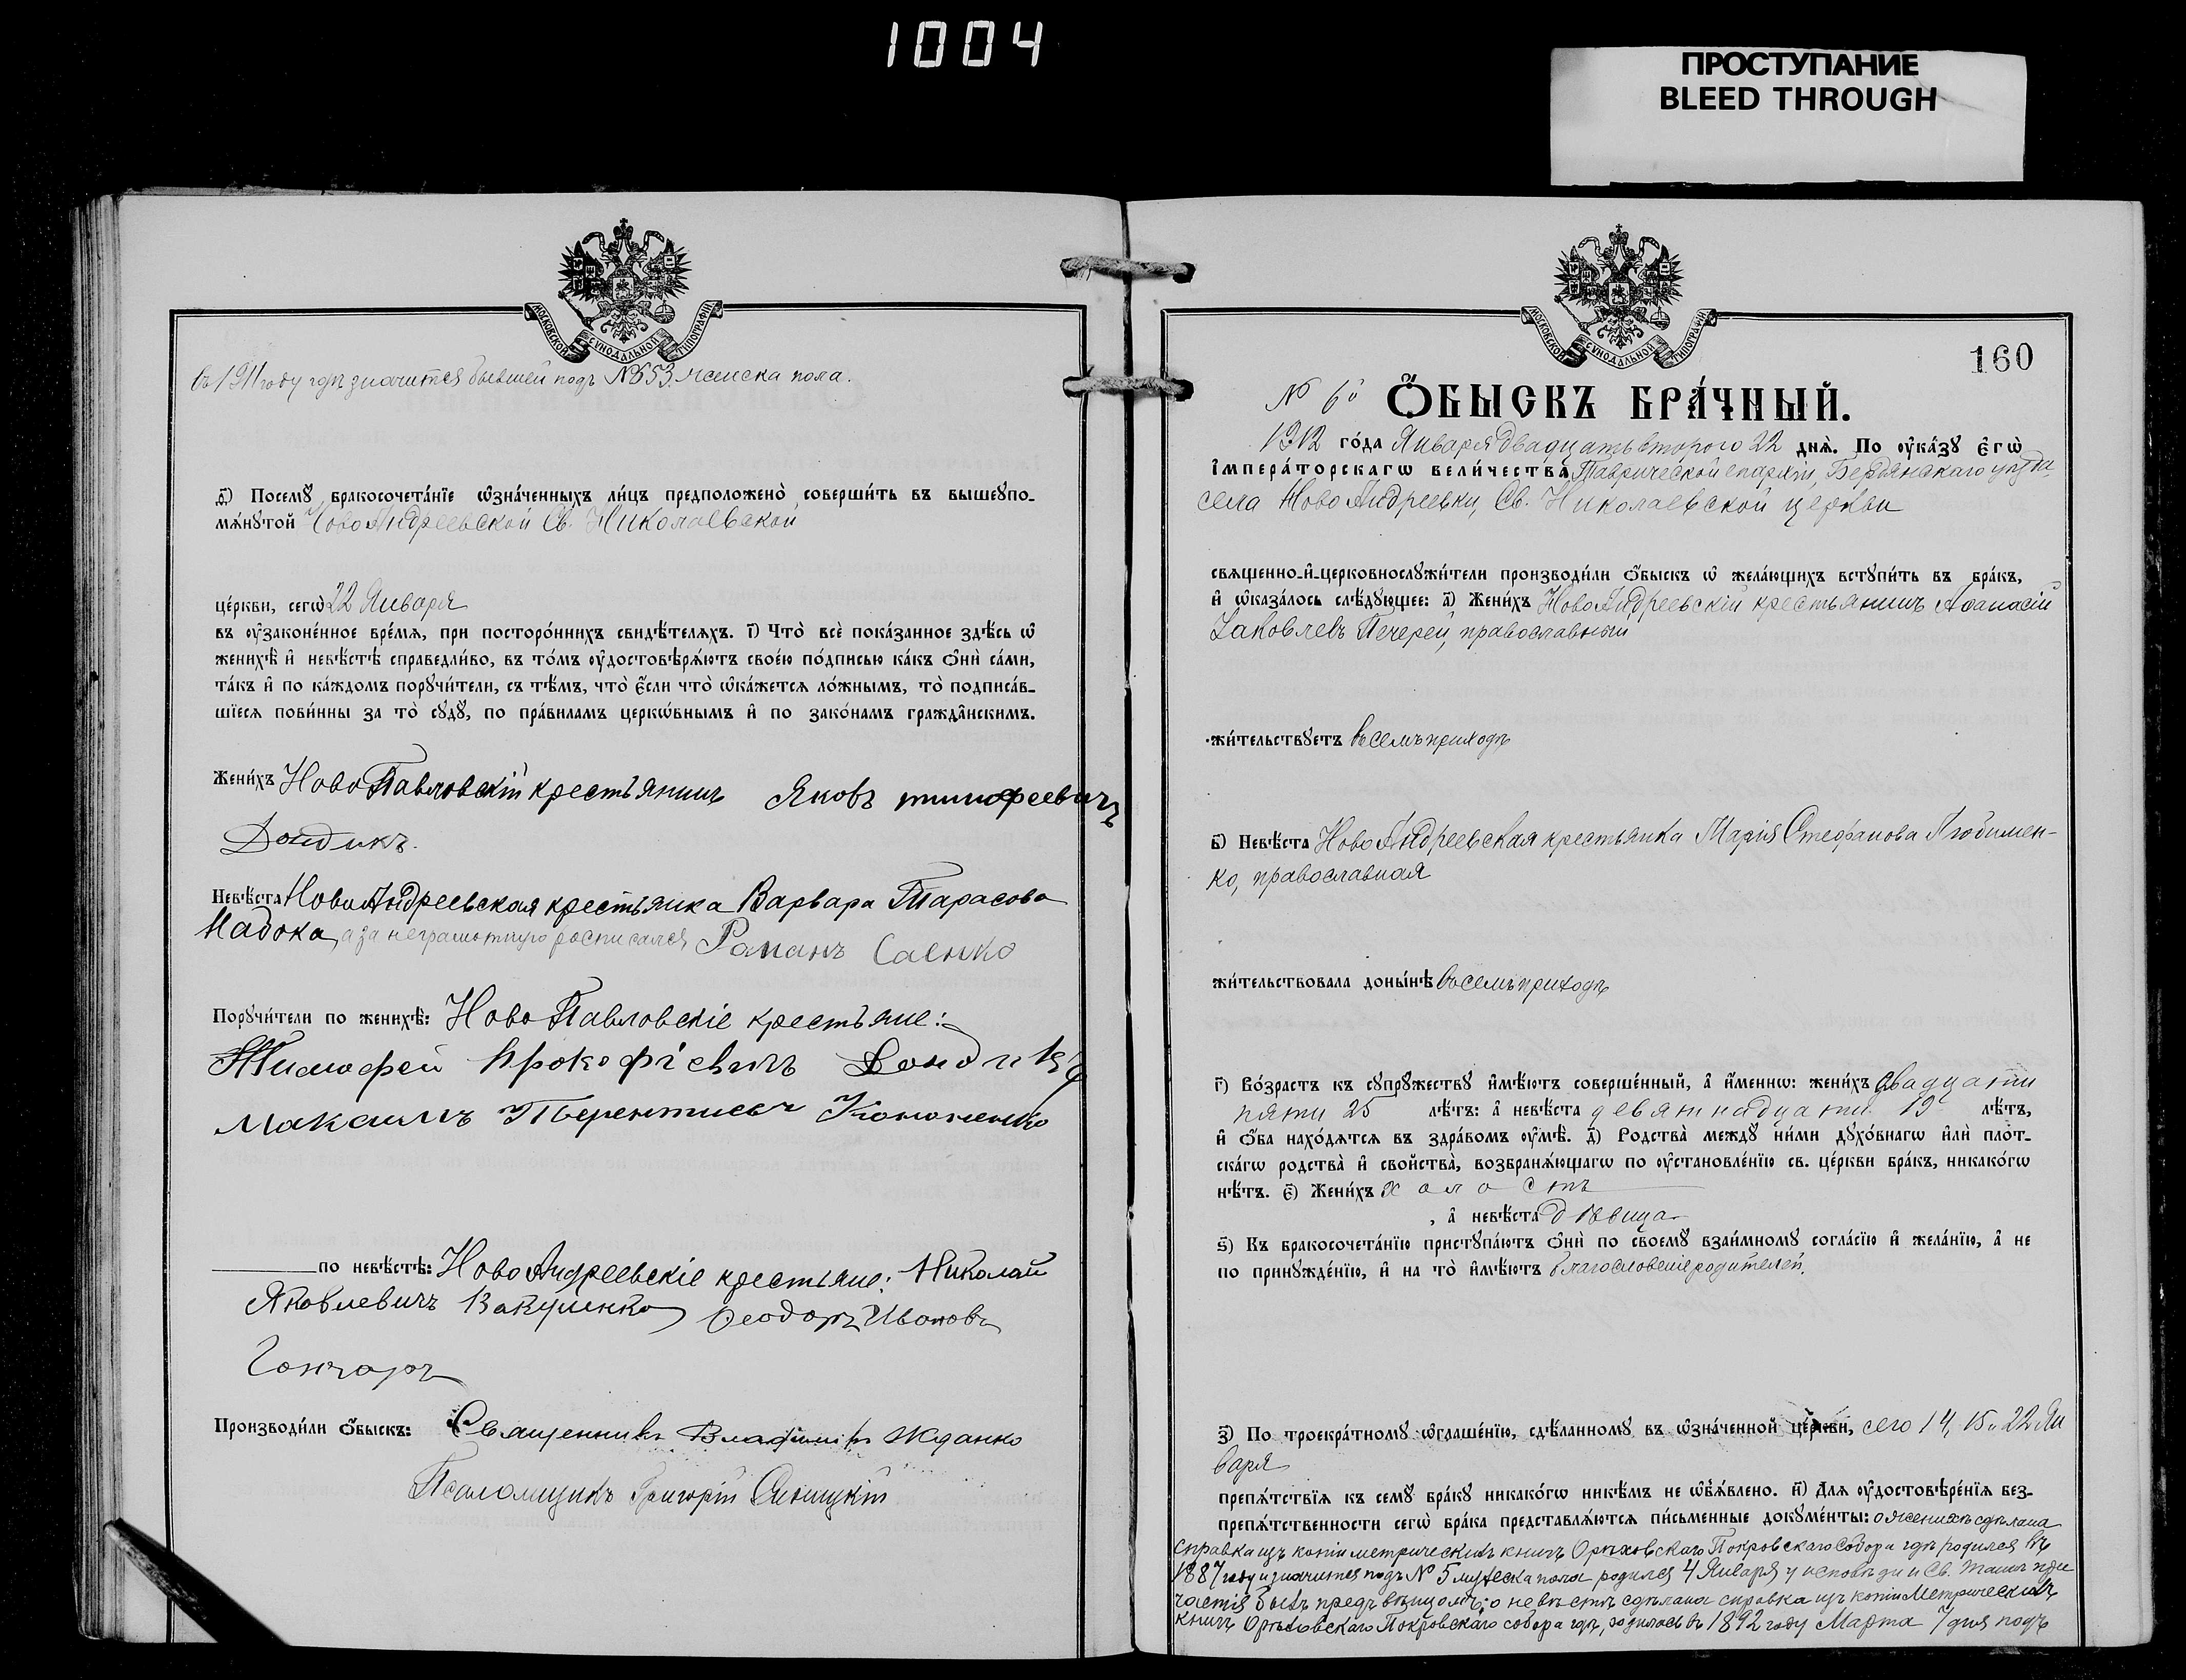 1004
ПРОСТУПАНИЕ
BLEED THROUGH
МОСКОВСКОЙ СѴНОДАЛЬНОЙ ТИПОГРАФІИ
въ 1911 году гдѣ значится бывшей подъ №653 женска пола.
д҃і) Посемꙋ бракосочета́нїе ѡ҆зна́ченныхъ ли́цъ предположено̀ соверши́ть въ вышеꙋпо-
мѧ́нꙋтой НовоАндреевской Св. Николаевской
це́ркви, сегѡ̀ 22 Января
въ ᲂу҆законе́нное вре́мѧ, при посторо́ннихъ свидѣ́телѧхъ. і҃) Что̀ всѐ пока́занное здѣ́сь ѡ҆
женихѣ̀ и҆ невѣ́стѣ справедли́во, въ то́мъ ᲂу҆достовѣрѧ́ютъ свое́ю по́дписью ка́къ ѻ҆нѝ са́ми,
та́къ и҆ по ка́ждомъ порꙋчи́тели, съ тѣ́мъ, что̀ є҆́сли что̀ ѡ҆ка́жетсѧ ло́жнымъ, то̀ подписа́в-
шїесѧ пови́нны за то̀ сꙋдꙋ̀, по пра́виламъ церкѡ́внымъ и҆ по зако́намъ гражда̂нскимъ.
Жени́хъ НовоПавловскій крестьянинъ Яковъ тимофеевичъ
Дондикъ.
Невѣ́ста НовоАндреевская крестьянка Варвара Тарасова
Надока, а за неграмотную росписался Романъ Саенко
Порꙋчи́тели по женихѣ̀: НовоПавловскіе крестьяне:
Тимофей Прокофіевичъ Дондикъ
Максимъ Терентиевъ Кононенко
по невѣ́стѣ: НовоАндреевскіе крестьяне: Николай
Яковлевичъ Вакуленко Феодоръ Ивановъ
Гончаръ
Производи́ли ѻ҆́быскъ: Священникъ Владиміръ Жданко
Псаломщикъ Григорій Синицкій
МОСКОВСКОЙ СѴНОДАЛЬНОЙ ТИПОГРАФІИ
160
№ 6й Ѻ҆́БЫСКЪ БРА́ЧНЫЙ.
1912 го́да Января двадцать второго 22 днѧ̀. По ᲂу҆ка́зꙋ є҆гѡ̀
и҆мпера́торскагѡ вели́чества Таврической епархіи, Бердянскаго уѣзда
села НовоАндреевки, Св. Николаевской церкви
свѧщенно-и҆-церковнослꙋжи́тели производи́ли ѻ҆́быскъ ѡ҆ жела́ющихъ встꙋпи́ть въ бра́къ,
и҆ ѡ҆каза́лось слѣ́дꙋющее: а҃) Жени́хъ НовоАндреевскій крестьянинъ Аѳанасій
Іаковлевъ Печерей, православный
жи́тельствꙋетъ въ семъ приходѣ
в҃) Невѣ́ста НовоАндреевская крестьянка Марія Стефанова Любимен-
ко, православная
жи́тельствовала доны́нѣ въ семъ приходѣ
г҃) Во́зрастъ къ сꙋпрꙋ́жествꙋ и҆мѣ́ютъ соверше́нный, а҆ и҆́менно: жени́хъ двадцати
пяти 25 лѣ́тъ: а҆ невѣ́ста девятнадцати 19 лѣ́тъ,
и҆ ѻ҆́ба нахо́дѧтсѧ въ здра́вомъ ᲂу҆мѣ̀. д҃) Родства̀ междꙋ ни́ми дꙋхо́внагѡ и҆лѝ пло́т-
скагѡ родства̀ и҆ сво́йства̀, возбранѧ́ющагѡ по ᲂу҆становле́нїю св. це́ркви бра́къ, никако́гѡ
нѣ́тъ. є҃) Жени́хъ холостъ
, а҆ невѣ́ста дѣвица
ѕ҃) Къ бракосочета́нїю пристꙋпа́ютъ ѻ҆нѝ по своемꙋ̀ взаи́мномꙋ согла́сїю и҆ жела́нїю, а҆ не
по принꙋжде́нїю, и҆ на то̀ и҆мѣ́ютъ благословеніе родителей.
з҃) По троекра́тномꙋ ѡ҆глаше́нїю, сдѣ́ланномꙋ въ ѡ҆зна́ченной це́ркви, сего 14, 15 и 22 Ян
варя
препѧ́тствїѧ къ семꙋ̀ бра́кꙋ никако́гѡ никѣ́мъ не ѡ҆б̾ѧ́влено. и҃) Длѧ ᲂу҆достовѣре́нїѧ без-
препѧ́тственности сегѡ̀ бра́ка представлѧ́ютсѧ пи́сьменные докꙋме́нты: о женихѣ сдѣлана
справка изъ копіи метрическихъ книгъ Орѣховскаго Покровскаго Собора гдѣ родился въ
1887 году и значится подъ № 5 мужеска пола родился 4 Января у исповѣди и Св. Таинъ При
частія былъ предъ вѣнцомъ; о невѣстѣ сдѣлана справка изъ копіи Метрическихъ
книгъ Орѣховскаго Покровскаго собора гдѣ, родилась въ 1892 году Марта 7 дня подъ